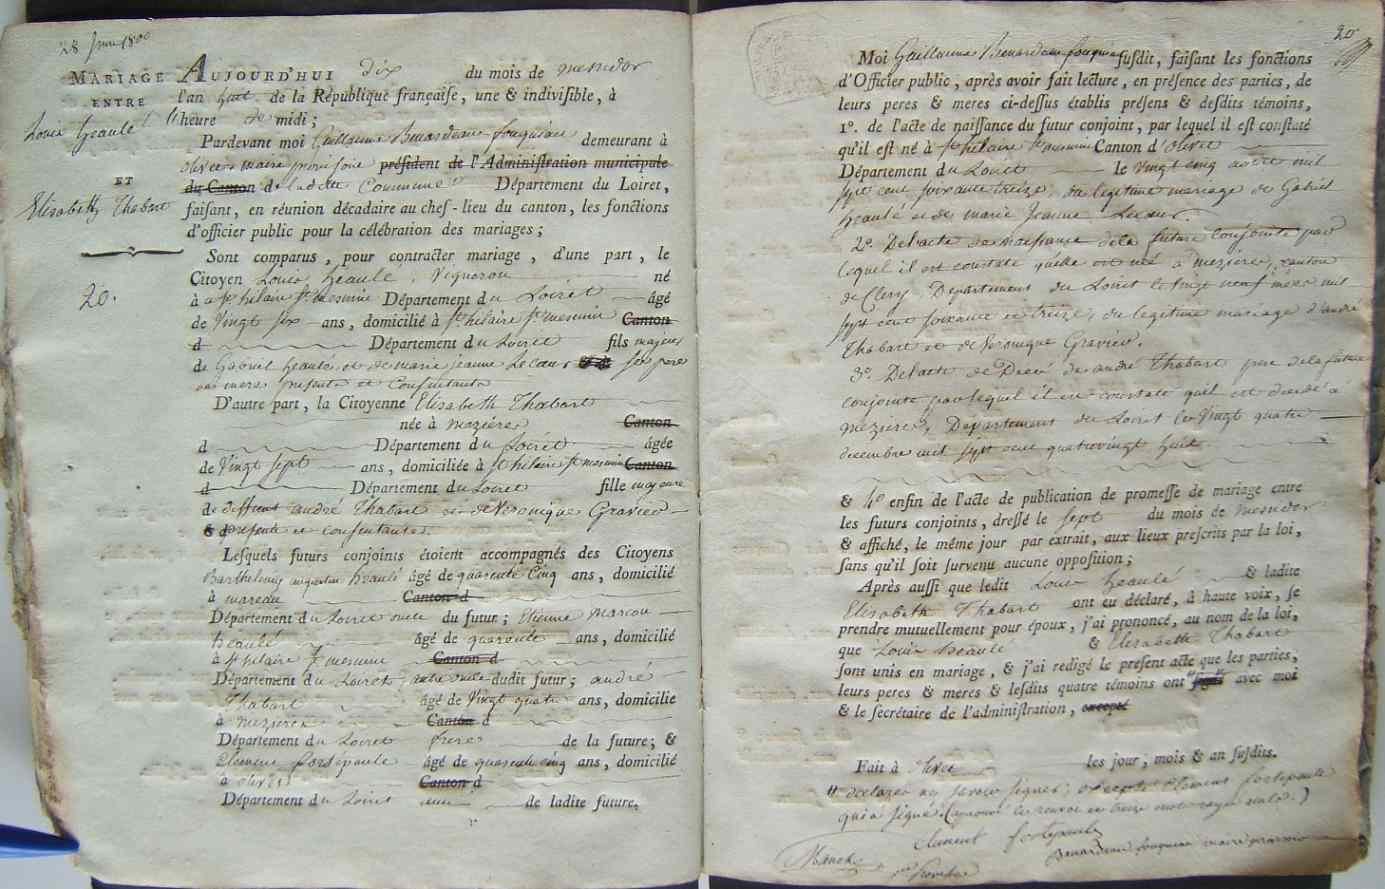 28 Juin 1800
MARIAGE
ENTRE
Louis heaulé
ET
Elisabeth Thabart
20.
AUJOURD'HUI dix du mois de messidor
l'an huit de la République françaiſe, une & indiviſible, à
heure de midi;
Pardevant moi Guillaume Benardeau fouqueau demeurant à
olivet maire provisoire préſident de l'Adminiſtration municipale
du Canton de ladite Commune Département du Loiret,
faiſant, en réunion décadaire au chef-lieu du canton, les fonctions
d'officier public pour la célébration des mariages;
Sont comparus, pour contracter mariage, d'une part, le
Citoyen Louis heaulé, Vigneron né
à St hilaire St mesmin Département du Loiret âgé
de Vingt six ans, domicilié à St hilaire St mesmin Canton
d Département du Loiret fils majeur
de Gabriel heaulé et de marie jeanne Lecœur ses pere
et mere présents et Consentants
D'autre part, la Citoyenne Elisabeth Thabart
née à mezieres Canton
d Département du Loiret âgée
de Vingt sept ans, domiciliée à St hilaire St mesmin Canton
d Département du Loiret fille majeure
de deffunt andré Thabart et de Veronique Gravier
& d présente et consentante.
Leſquels futurs conjoints étoient accompagnés des Citoyens
Barthelemy augustin heaulé âgé de quarente Cinq ans, domicilié
à mareau Canton d
Département du Loiret oncle du futur; Etienne Marcou
heaulé âgé de quarente ans, domicilié
à St hilaire St mesmin Canton d
Département du Loiret autre oncle dudit futur; andré
Thabart âgé de Vingt quatre ans, domicilié
à mezieres Canton d
Département du Loiret frere de la future; &
Clement fortepaule âgé de quarente cinq ans, domicilié
à olivet Canton d
Département du Loiret de ladite future.
20
Moi Guillaume Benardeau fouqueau ſuſdit, faiſant les fonctions
d'Officier public, après avoir fait lecture, en préſence des parties, de
leurs peres & meres ci-deſſus établis préſens & deſdits témoins,
1°. de l'acte de naiſſance du futur conjoint, par lequel il eſt conſtaté
qu'il eſt né à St hilaire St mesmin Canton d'olivet
Département du Loiret le Vingt cinq mil
sept cent soixante treize, du legitime mariage de Gabriel
heaulé et de marie Jeanne Lecœur.
2°. De l'acte de naissance de la future conjointe par
lequel il est constaté qu'elle est née à mezieres, canton
de Clery, Département du Loiret le vingt neuf mars mil
sept cent soixante et treize, du legitime mariage d'andré
Thabart et de Veronique Gravier.
3°. De l'acte de Décé de andré Thabart pere de la future
conjointe par lequel il est constaté qu'il est décédé à
mezieres, Département du Loiret le Vingt quatre
decembre mil sept cent quatrevingt huit
& 4° enfin de l'acte de publication de promeſſe de mariage entre
les futurs conjoints, dreſſé le sept du mois de messidor
& affiché, le même jour par extrait, aux lieux preſcrits par la loi,
ſans qu'il ſoit ſurvenu aucune oppoſition;
Après auſſi que ledit Louis heaulé & ladite
Elisabeth Thabart ont eu déclaré, à haute voix, ſe
prendre mutuellement pour époux, j'ai prononcé, au nom de la loi,
que Louis heaulé & Elisabeth Thabart
ſont unis en mariage, & j'ai redigé le preſent acte que les parties,
leurs peres & meres & leſdits quatre témoins ont ſigné avec moi
& le ſecrétaire de l'adminiſtration, excepté
Fait à olivet les jour, mois & an ſuſdits.
declarer ne savoir signer, excepté Clement fortepaule
qui a signé.
Clement fortepaule
Benardeau fouqueau maire provisoire